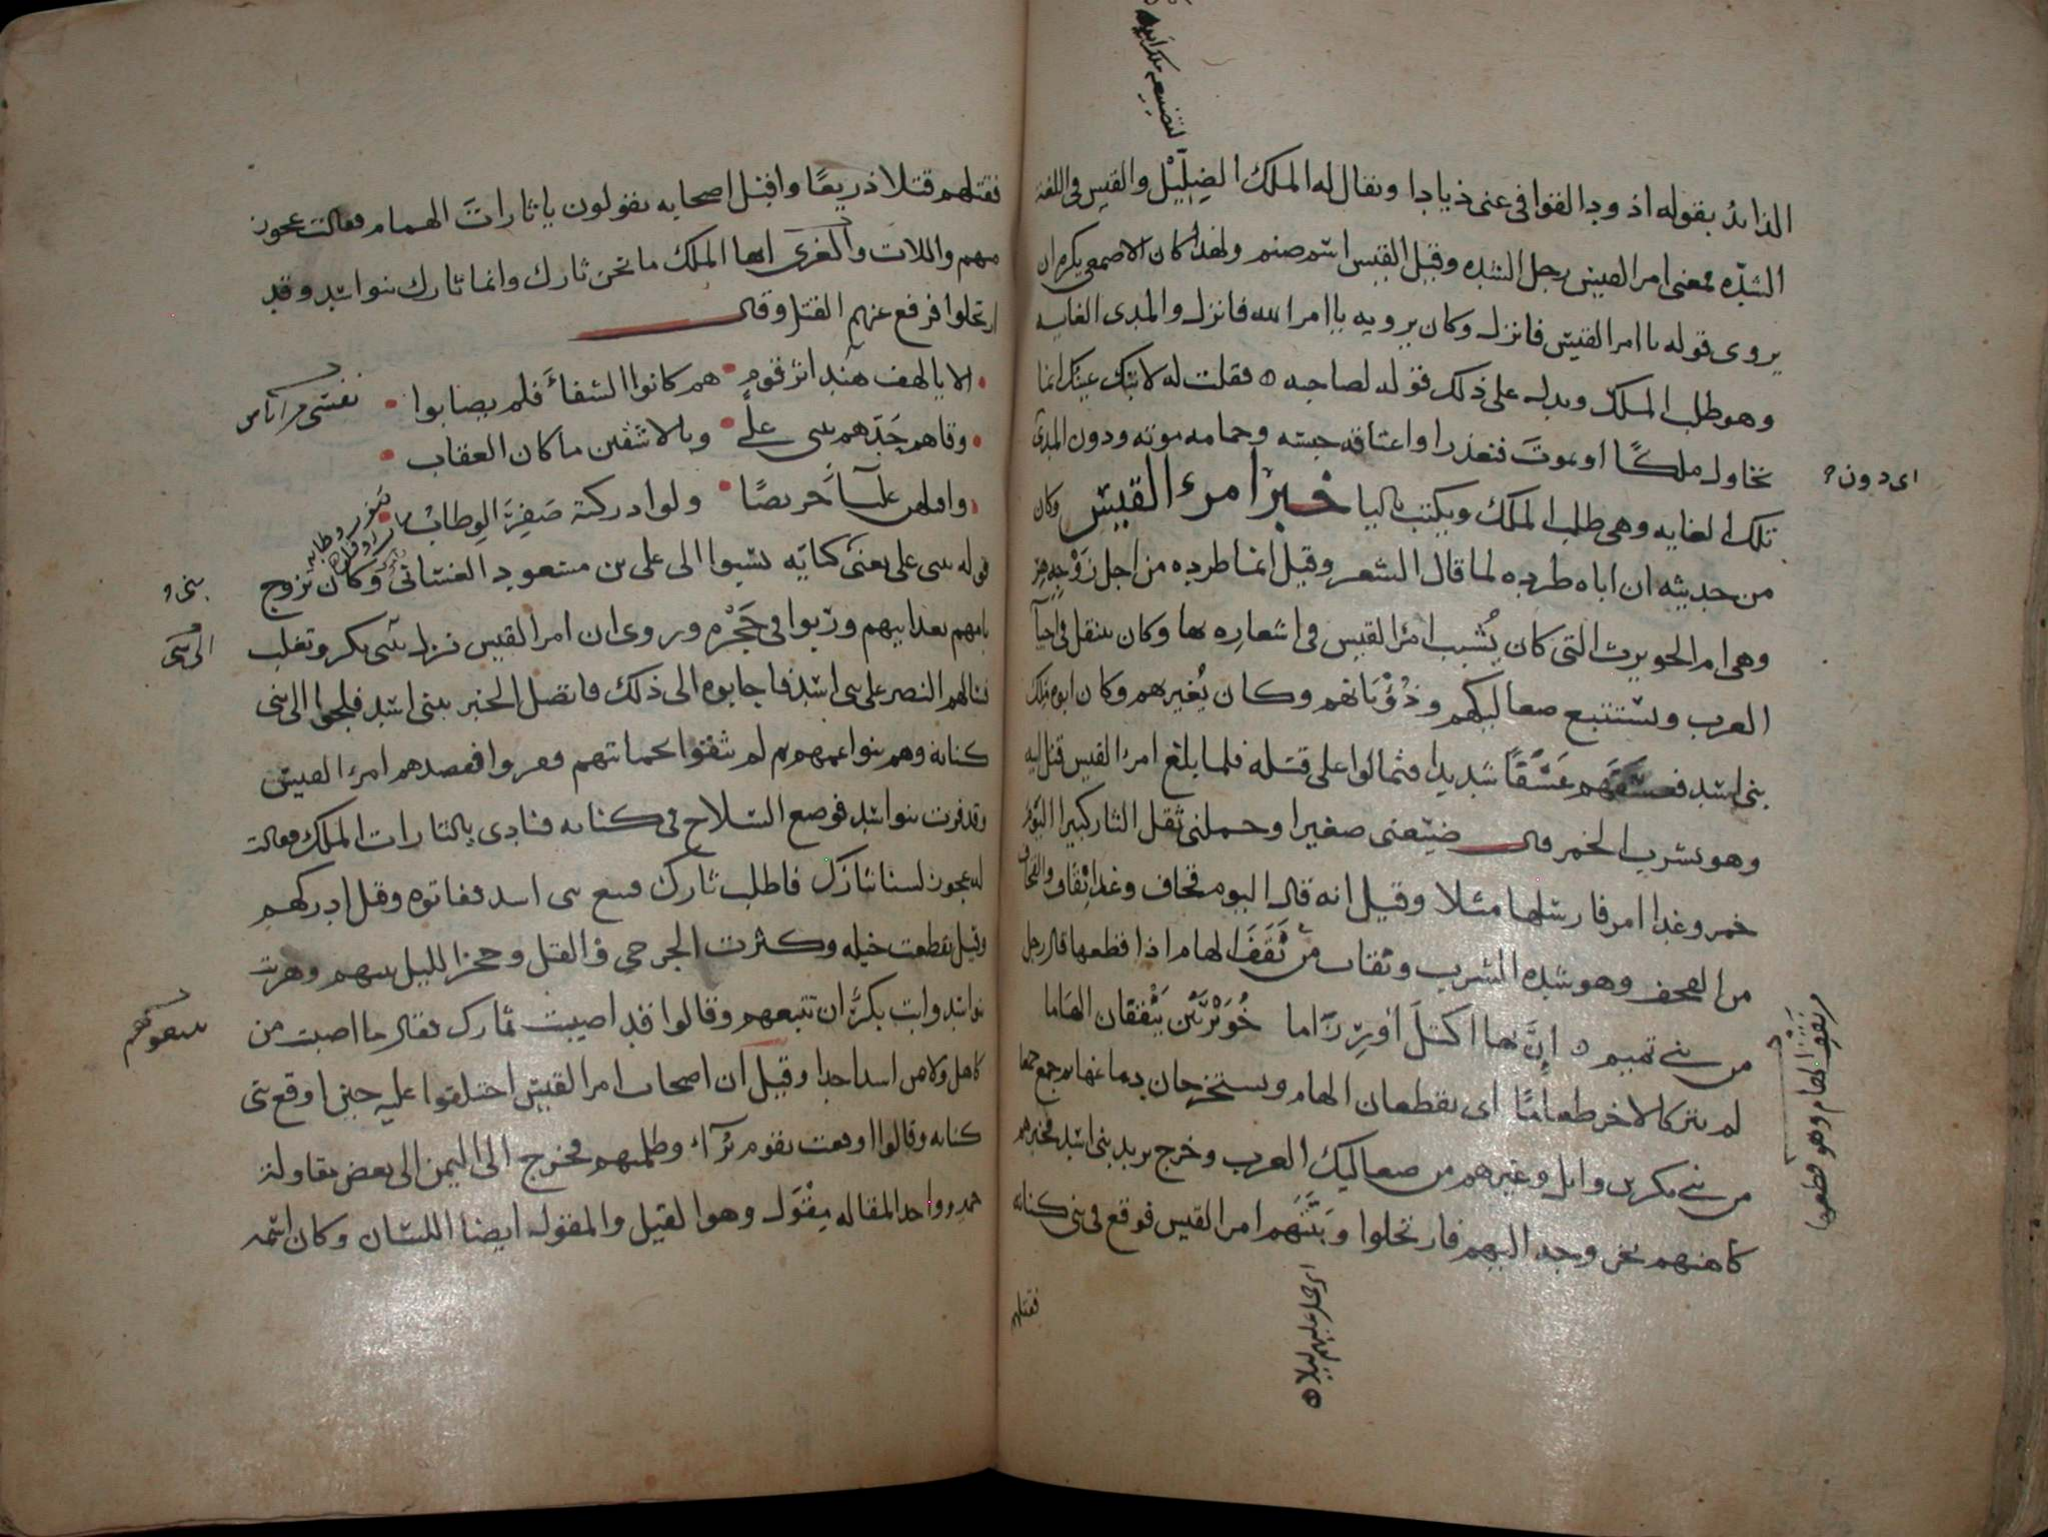 لتضييعه ملك ابيه
الذائد بقوله اذود القوافى عنى ذيادا ويقال له الملك الضِلّيْل والقيس فى اللغة
الشدّه فمعنى امرا القيس رجل الشده وقيل القيس اسم صنم ولهذا كان الاصمعى يكره ان
يروى قوله يا امرا القيس فانزل وكان يرويه يا امرا الله فانزل والمدى الغايه
وهو طلب الملك ويدل على ذلك قوله لصاحبه ه فقلت له لا تبك عينك انما
نحاول ملكًا او نموتَ فنعذرا واعتاقه حبسه وحمامه موته ودون المدى
اى دون
تلك الغايه وهى طلب الملك ويكتب باليا خبر امرء القيس وكان
من حديثه ان اباه طرده لما قال الشعر وقيل انما طرده من اجل زَوْجِه هر
وهى ام الحويرث التى كان يُشبب امرُا القيس فى اشعاره بها وكان ينتقل فى احيآ
العرب ويستتبع صعاليكهم وذُؤْبَانهم وكان يُغير بهم وكان ابوه ملك
بنى اسد فعسَفَهم عَسْفًا شديدا فتمالوا على قتله فلما بلغ امرءا القيس قتل ابيه
وهو يشرب الخمر قال ضيّعنى صغيرا وحملنى ثقل الثار كبيرا اليوم
خمر وغدا امر فارسلها مثلا وقيل انه قال اليوم قحاف وغدا نِقَاف والقحاف
من القحف وهو شده الشرب ونقاف من نَقَفَ الهام اذا قطعها قال رجل
من بنى تميم ه إنّ بها اكتلَ اوْ رِزَاما خُوَيْرِبَيْن يَنْقفان الهَاما
نَقَفَ الهام وهو قطعها
لم يتركا لاخر طعامًا اى يقطعان الهام ويستخرجان دماغها ثم جمع جمعا
من بنى بكر بن وايل وغيرهم من صعاليك العرب وخرج يريد بنى اسد فخبرهم
كاهنهم بخروجه اليهم فارتحلوا وبَيَّتَهُم امرا القيس فوقع فى بنى كنانه
فقتلهم
فقتلهم قتلا ذريعًا واقبل اصحابه يقولون يا ثاراتَ الهمام فقالت عجوز
منهم واللات والعُزى ايها الملك ما نحن ثارك وانما ثارك بنو اسد وقد
ارتحلوا فرفع عنهم القتل وقال
الا يا لهف هندٍ اثر قومٍ هم كانوا الشفاءَ فلم يصابوا
وقاهم جَدّهم ببنى علىٍ وبالاشقين ما كان العقاب
وافلتهن علبآءٌ جريضًا ولو ادركنه صَفِرَ الوِطاب
قوله بنى على يعنى كنانه نسبوا الى على بن مسعود الغسانى وكان تزوج
بامهم بعد ابيهم ورُبوا فى حَجْرِه وروى ان امرا القيس نزل ببنى بكر وتغلب
فسالهم النصر على بنى اسد فاجابوه الى ذلك فاتصل الخبر ببنى اسد فلجوا الى بنى
كنانة وهم بنو اعمهم ثم لم يثقوا بحمايتهم ففروا فقصدهم امرء القيس
وقد فرت بنو اسد فوضع السلاح فى كنانه فنادى يالثارات الملك فقالت
له عجوز لسنا ثارَك فاطلب ثارك فتبع بنى اسد ففاتوه وقيل ادركهم
وقيل تقطعت خيله وكثرت الجرحى والقتل وحجز الليل بينهم وهربت
بنو اسد وابت بكرٌ ان تتبعهم وقالوا قد اصبت ثارك فقال ما اصبت من
كاهل ولا من اسد احدا وقيل ان اصحاب امرا القيس اختلفوا عليه حين اوقع ببنى
كنانه وقالوا اوقعت بقوم بُرَآءَ وظلمتهم فخرج الى اليمن الى بعض مقاولة
حمير وواحد المقاله مِقْوَل وهو القيل والمقول ايضا اللسان وكان اسمه